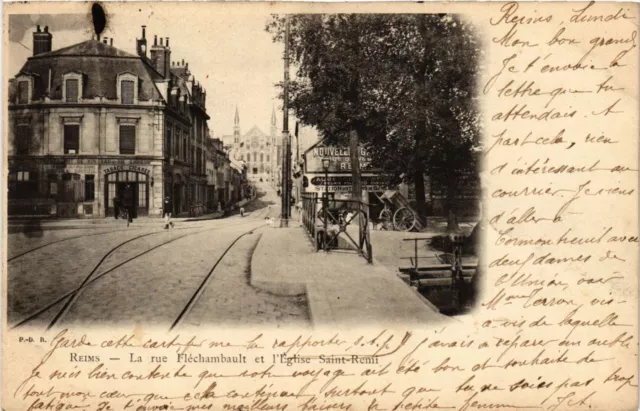 Reims, Lundi
Mon bon grand
Je t'envoie la
lettre que tu
attendais. A
part cela, rien
d'intéressant au
courrier. Je viens
d'aller à
Cormontreuil avec
deux dames de
l'Union, voir
Mme Terron, vis-
à-vis de laquelle
j'avais à réparer un oubli.
NOUVELLE
P.-D. R.
REIMS — La rue Fléchambault et l'Église Saint-Remi
Garde cette carte et me la rapporte S.t.p.
Je suis bien contente que notre voyage ait été bon et souhaite de
tout mon cœur que cela continue surtout que tu ne sois pas trop
fatigué. Je t'envoie mes meilleurs baisers ta petite femme